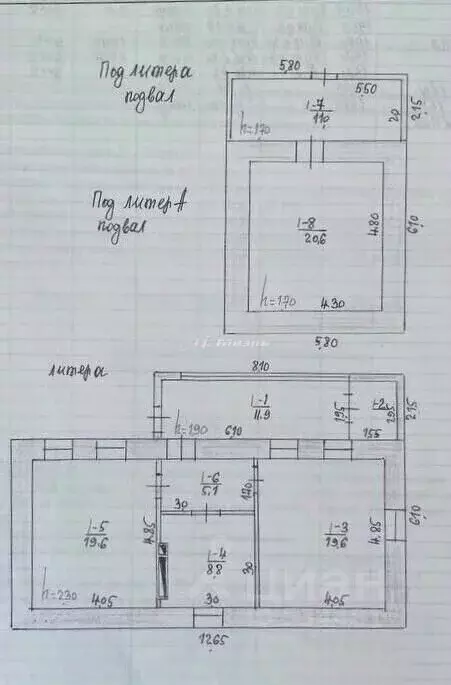 Под литера
подвал
5,80
5,50
1-7
11,0
20
2,15
h=1,70
Под литер А
подвал
1-8
20,6
4,80
6,10
h=1,70
4,30
5,80
литера
8,10
1-1
11.9
1,95
1-2
2,95
2,15
h=1,90
6,10
1,55
1-6
5,1
1,70
30
1-5
19,6
4,85
1-4
8,8
30
1-3
19,6
4,85
6,10
h=2,30
4,05
30
4,05
12,65
циан